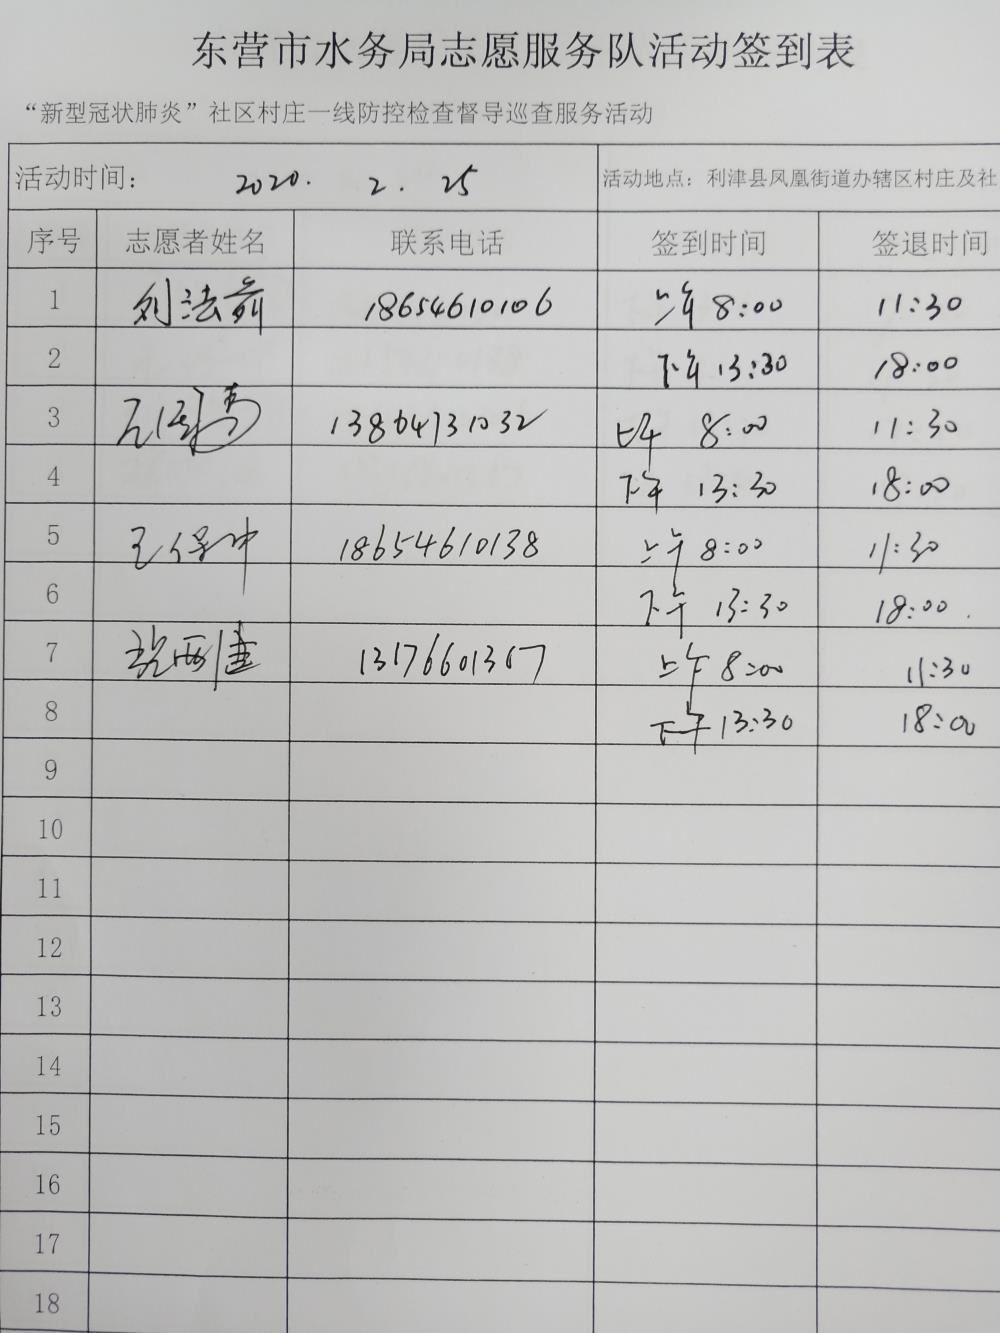 东营市水务局志愿服务队活动签到表
“新型冠状肺炎”社区村庄一线防控检查督导巡查服务活动
活动时间： 2020. 2. 25 活动地点：利津县凤凰街道办辖区村庄及社
序号 志愿者姓名 联系电话 签到时间 签退时间
1 刘法前 18654610106 上午 8:00 11:30
2 下午 13:30 18:00
3 13864731032 上午 8:00 11:30
4 下午 13:30 18:00
5 王保冲 18654610138 上午 8:00 11:30
6 下午 13:30 18:00.
7 13176601367 上午 8:00 11:30
8 下午 13:30 18:00
9
10
11
12
13
14
15
16
17
18